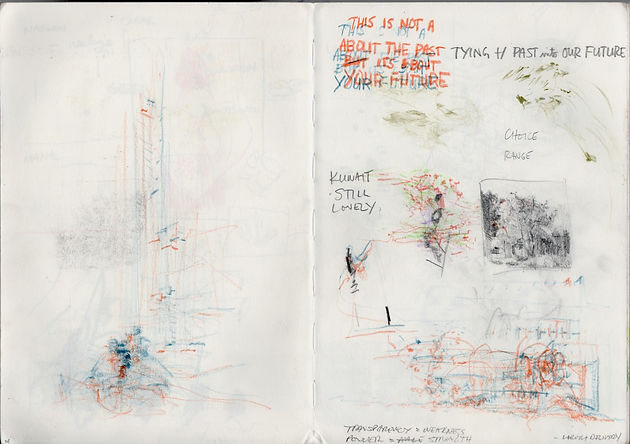 THIS IS NOT A
ABOUT THE PAST
BUT ITS ABOUT
YOUR FUTURE
TYING PAST into OUR FUTURE
CHOICE
RANGE
KUWAIT
STILL
LOVELY
TRANSPARENCY = WEAKNESS
POWER = STRENGTH